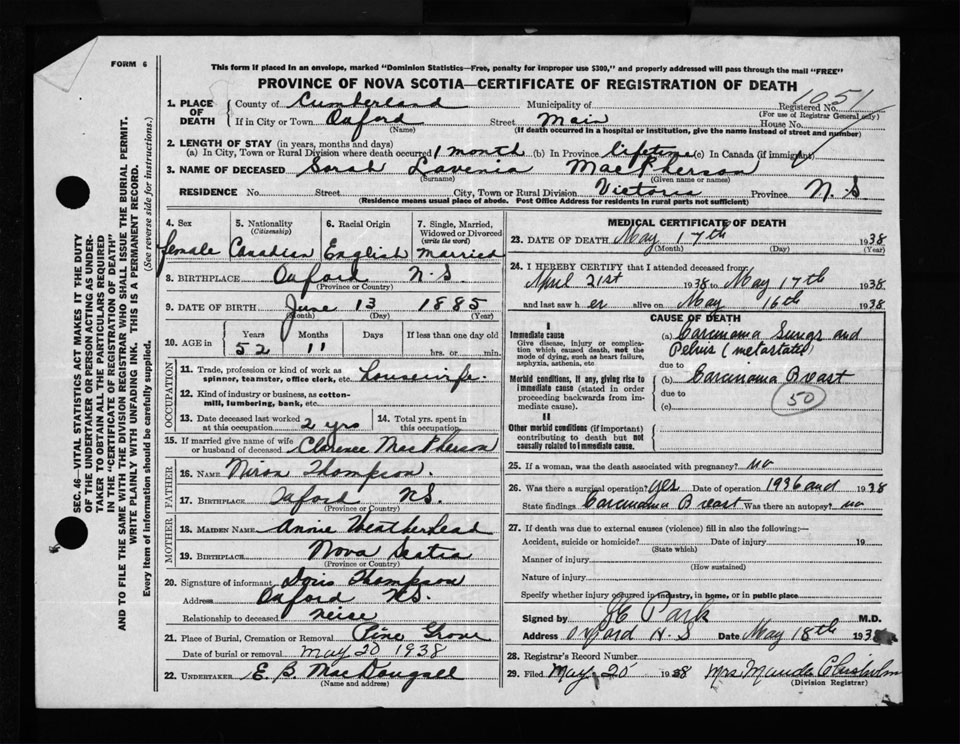 FORM 6
This form if placed in an envelope, marked "Dominion Statistics—Free, penalty for improper use $300," and properly addressed will pass through the mail "FREE"
PROVINCE OF NOVA SCOTIA—CERTIFICATE OF REGISTRATION OF DEATH
1051
1. PLACE OF DEATH County of Cumberland Municipality of Registered No.
(For use of Registrar General only)
If in City or Town Oxford Street Main House No.
(Name) (If death occurred in a hospital or institution, give the name instead of street and number)
2. LENGTH OF STAY (in years, months and days)
(a) In City, Town or Rural Division where death occurred 1 month (b) In Province lifetime (c) In Canada (if immigrant)
3. NAME OF DECEASED Sarah Lavenia MacPherson
(Surname) (Given name or names)
RESIDENCE No. Street City, Town or Rural Division Victoria Province N.S
(Residence means usual place of abode. Post Office Address for residents in rural parts not sufficient)
4. Sex 5. Nationality 6. Racial Origin 7. Single, Married,
(Citizenship) Widowed or Divorced
(write the word)
female Canadian English married
8. BIRTHPLACE Oxford N.S.
(Province or Country)
9. DATE OF BIRTH June 13 1885
(Month) (Day) (Year)
10. AGE in Years Months Days If less than one day old
52 11 hrs. or min.
OCCUPATION
11. Trade, profession or kind of work as
spinner, teamster, office clerk, etc. housewife.
12. Kind of industry or business, as cotton-
mill, lumbering, bank, etc.
13. Date deceased last worked 14. Total yrs. spent in
at this occupation 2 yrs in this occupation
15. If married give name of wife
or husband of deceased Clarence MacPherson
FATHER
16. NAME Thompson.
17. BIRTHPLACE Oxford NS.
(Province or Country)
MOTHER
18. MAIDEN NAME Annie Weatherhead
19. BIRTHPLACE Nova Scotia
(Province or Country)
20. Signature of informant Doris Thompson
Address Oxford N.S.
Relationship to deceased neise
21. Place of Burial, Cremation or Removal Pine Grove
Date of burial or removal may 20 1938
22. UNDERTAKER E. B. MacDougall
(Name and address)
MEDICAL CERTIFICATE OF DEATH
23. DATE OF DEATH May 17th 1938
(Month) (Day) (Year)
24. I HEREBY CERTIFY that I attended deceased from
April 21st 1938 to May 17th 1938
and last saw h er alive on May 16th 1938
CAUSE OF DEATH
I
Immediate cause
Give disease, injury or complication which caused death, not the mode of dying, such as heart failure, asphyxia, asthenia, etc
(a) Carcinoma Lungs and
Pelvis (metastates)
due to
Morbid conditions, if any, giving rise to immediate cause (stated in order proceeding backwards from immediate cause).
(b) Carcinoma Breast
due to
(c)
50
II
Other morbid conditions (if important) contributing to death but not causally related to immediate cause.
25. If a woman, was the death associated with pregnancy? no
26. Was there a surgical operation? yes Date of operation 1936 and 1938
State findings Carcinoma Breast Was there an autopsy? no
27. If death was due to external causes (violence) fill in also the following:—
Accident, suicide or homicide? Date of injury 19
(State which)
Manner of injury
(How sustained)
Nature of injury
Specify whether injury occurred in industry, in home, or in public place
Signed by Park M.D.
Address Oxford N.S Date May 18th 193
28. Registrar's Record Number
29. Filed May 20 1938 Mrs. Maude Chisholm
(Division Registrar)
SEC. 46—VITAL STATISTICS ACT MAKES IT THE DUTY
OF THE UNDERTAKER OR PERSON ACTING AS UNDER-
TAKER TO OBTAIN ALL THE PARTICULARS REQUIRED
IN THE "CERTIFICATE OF REGISTRATION OF DEATH"
AND TO FILE THE SAME WITH THE DIVISION REGISTRAR WHO SHALL ISSUE THE BURIAL PERMIT.
WRITE PLAINLY WITH UNFADING INK. THIS IS A PERMANENT RECORD.
Every item of information should be carefully supplied. (See reverse side for instructions.)